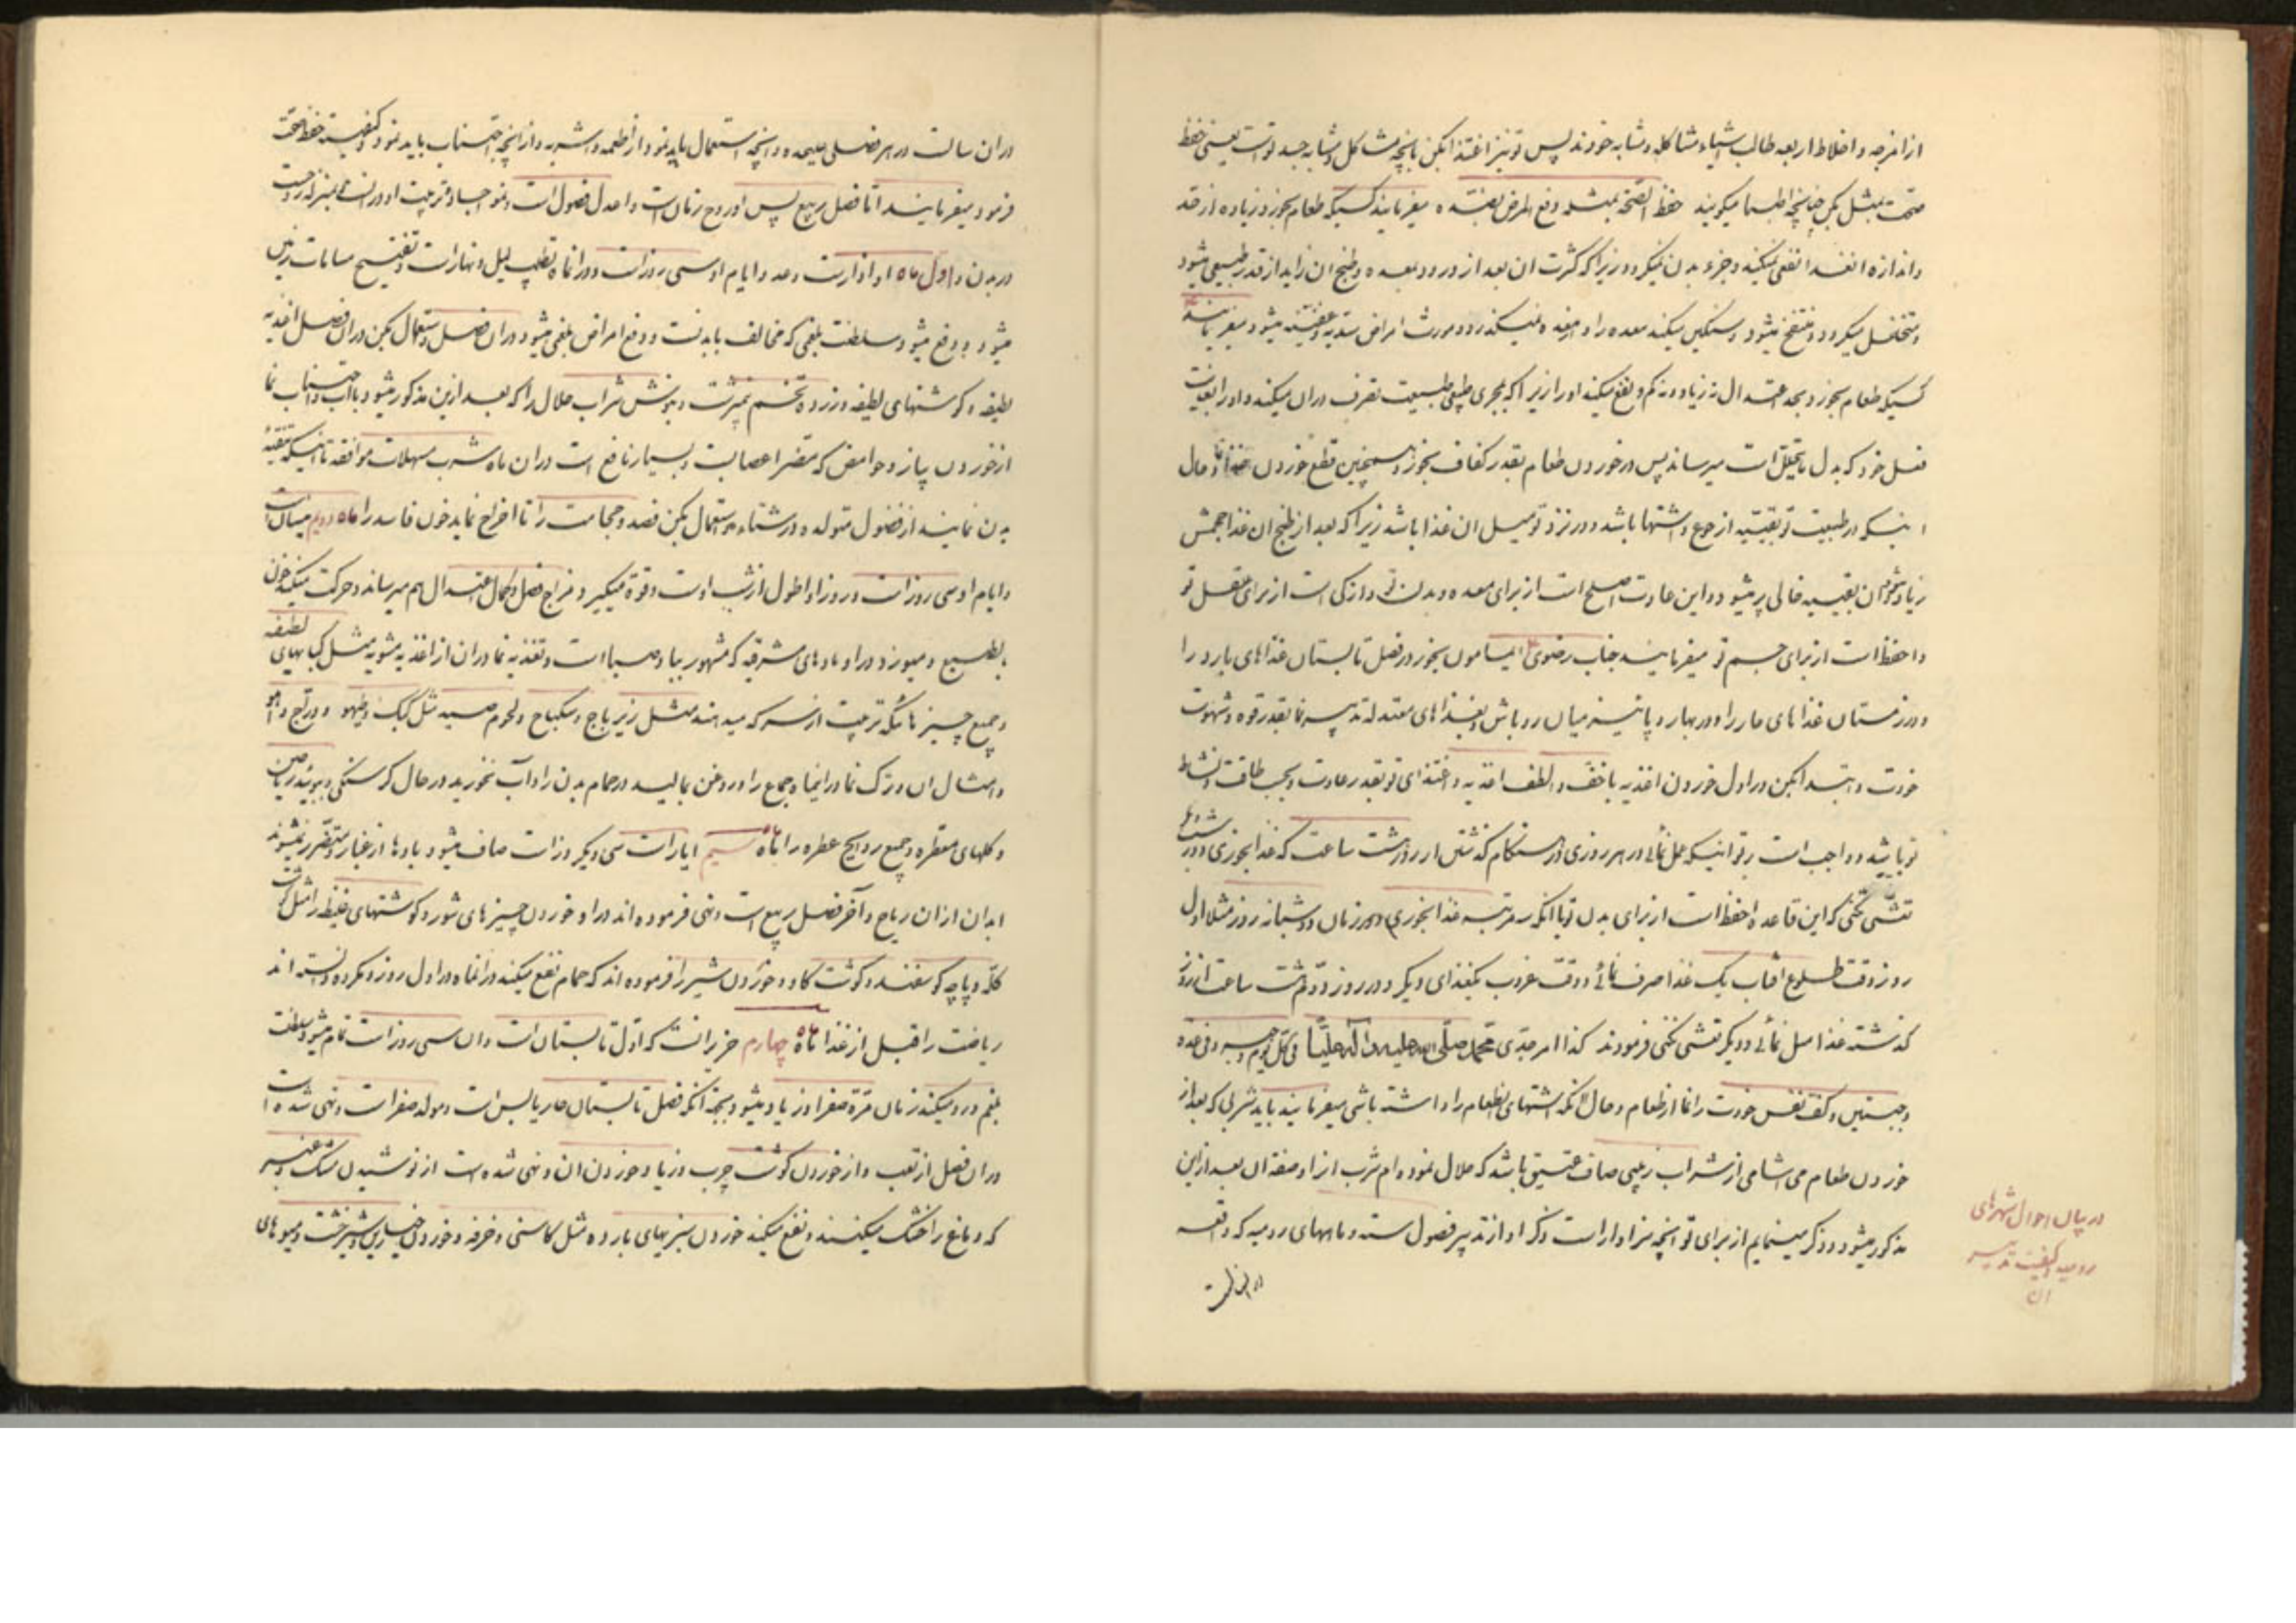 از امزجه و اخلاط اربعه طالب اشیاء مشاکله و مشابه خودند پس تو نیز اغتذا بکن بانچه مشاکل و مشابه جسد تو است یعنی حفظ
صحت بمثل بکن چنانچه اطبا میگویند حفظ الصحة بمثله و دفع المرض بضده میفرمایند کسیکه طعام بخورد زیاده از قد
و اندازه انغذا نفعی نمیکند و جزء بدن نمیگردد زیرا که کثرت ان بعد از ورود بمعده و طبخ ان زاید از قدر طبیعی میشود
و متخلخل میگردد و منتفخ میشود و سنگین میکند معده را و از معده نمیگذرد و مورث امراض سدیه و عفنیه میشود میفرمایند
کسیکه طعام بخورد بحد اعتدال نه زیاد و نه کم و نفع میکند او را زیرا که بمجری طبیعی طبیعت تصرف دران میکند و او را بغایت
فعل خود که بدل ما یتحلل است میرساند پس در خوردن طعام بقدر کفاف بخور و همچنین قطع خوردن غذا نما و حال
اینکه در طبیعت تو بقیه از جوع و اشتها باشد و در نزد تو میل ان غذا باشد زیرا که بعد از طبخ ان غذا حجمش
زیاد میشود ان بقیه خالی پر میشود و این عادت اصلح است از برای معده و بدن تو و ازکی است از برای عقل تو
و احفظ است از برای جسم تو میفرمایند جناب رضوی ایمامون بخور در فصل تابستان غذاهای بارد را
و در زمستان غذاهای حار را و در بهار و پائیز میان رو باش و بغذاهای معتدله تدبیر نما بقدر قوه و شهوت
خودت و ابتدا بکن در اول خوردن اغذیه باخف و الطف اغذیه و اغتذای تو بقدر عادت و بحسب طاقت و نشاط
تو باشد و واجب است بر تو اینکه عمل نمائی در هر روزی در هنگام گذشتن از روز هشت ساعت که غذا بخوری و در شب
تعشی نکنی که این قاعده احفظ است از برای بدن تو یا انکه سه مرتبه غذا بخوری در زمان دو شبانه روز مثلا اول
روز وقت طلوع افتاب یک غذا صرف نمائی و وقت غروب یکغذای دیگر و در روز دوم هشت ساعت از روز
گذشته غذا میل نمائی و دیگر تعشی نکنی فرمودند کذا امر جدی محمد صلی الله علیه و آله علیا فی کل یوم وجبة و فی غده
وجبتین و کف نفس خودت را نما از طعام و حال انکه اشتهای بطعام را داشته باشی میفرمایند باید شربی که بعد از
خوردن طعام می اشامی از شراب زبیبی صاف عتیق باشد که حلال نموده ام شرب انرا و صفة ان بعد از این
مذکور میشود و ذکر مینمایم از برای تو انچه سزاوار است ذکر او از تدبیر فصول سنه و ماههای رومیه که واقعه
در بیان احوال شهرهای
رومیه و کیفیت تدبیر
ان
دران سالست در هر فصلی علیحده و انچه استعمال باید نمود از اطعمه و اشربه و از انچه اجتناب باید نمود و کیفیت حفظ صحت
فرمود میفرمایند اما فصل ربیع پس او روح زمان است و اعدل فصول است و نمو اجساد و تربیت او در انست بمنزله روحست
در بدن و اول ماه او اذار است و عدد ایام او سی روز است و در انماه تطیب لیل و نهار است و تفتیح مسامات زمین
میشود و دفع میشود سلطنت بلغمی که مخالف با بدنست و دفع امراض بلغمی میشود دران فصل و استعمال بکن دران فصل اغذیه
لطیفه و گوشتهای لطیفه و زرده تخم نیمبرشت و بنوش شراب حلال را که بعد ازین مذکور میشود با آب و اجتناب نما
از خوردن پیاز و حوامض که مضر اعصابست و بسیار نافع است دران ماه شرب مسهلات موافقه تا اینکه تنقیه
بدن نمایند از فضول متولده در شتاء و استعمال بکن فصد و حجامت را تا اخراج نماید خون فاسد را ماه دویم نیسان است
و ایام او سی روز است و روز او اطول از شب اوست و قوة میگیرد مزاج فصل و بکمال اعتدال هم میرساند و حرکت میکند خون
بالطبیع و میوزد در او بادهای مشرقیه که مشهور بباد صبا است و تغذیه نما دران از اغذیه مشویه مثل کبابهای لطیفه
و جمیع چیزهائیکه تربیت از سرکه میدهند مثل زیرباج و سکباج و لحوم صید مثل کبک و طیهو و دراج و آهو
و امثال ان و ترک نما در اینماه جماع را و روغن بمالید در حمام بدن را و آب نخورید در حال گرسنگی و ببوئید ریاحین
و گلهای معطره و جمیع روایح عطره را ماه سیم ایار است سی و یکروز است صاف میشود بادها از غبار و متضرر نمیشوند
ابدان ازان ریاح و آخر فصل ربیع است و نهی فرموده اند در او خوردن چیزهای شور و گوشتهای غلیظ را مثل گوشت
کله و پاچه گوسفند و گوشت گاو و خوردن شیر را فرموده اند که حمام نفع میکند در انماه در اول روز و مکروه دانسته اند
ریاضت را قبل از غذا ماه چهارم حزیرانست که اول تابستان است و ان سی روز است تمام میشود سلطنت
بلغم و رد میکند زمان مرة صفرا و زیاد میشود بجهة انکه فصل تابستان حار یابس است و مولد صفراست و نهی شده است
دران فصل از تعب و از خوردن گوشت چرب و زیاد خوردن ان و نهی شده است از نوشیدن مشک و عنبر
که دماغ را خشک میکنند و نفع میکند خوردن سبزیهای بارده مثل کاسنی و خرفه و خوردن خیارین و شیرخشت و میوهای